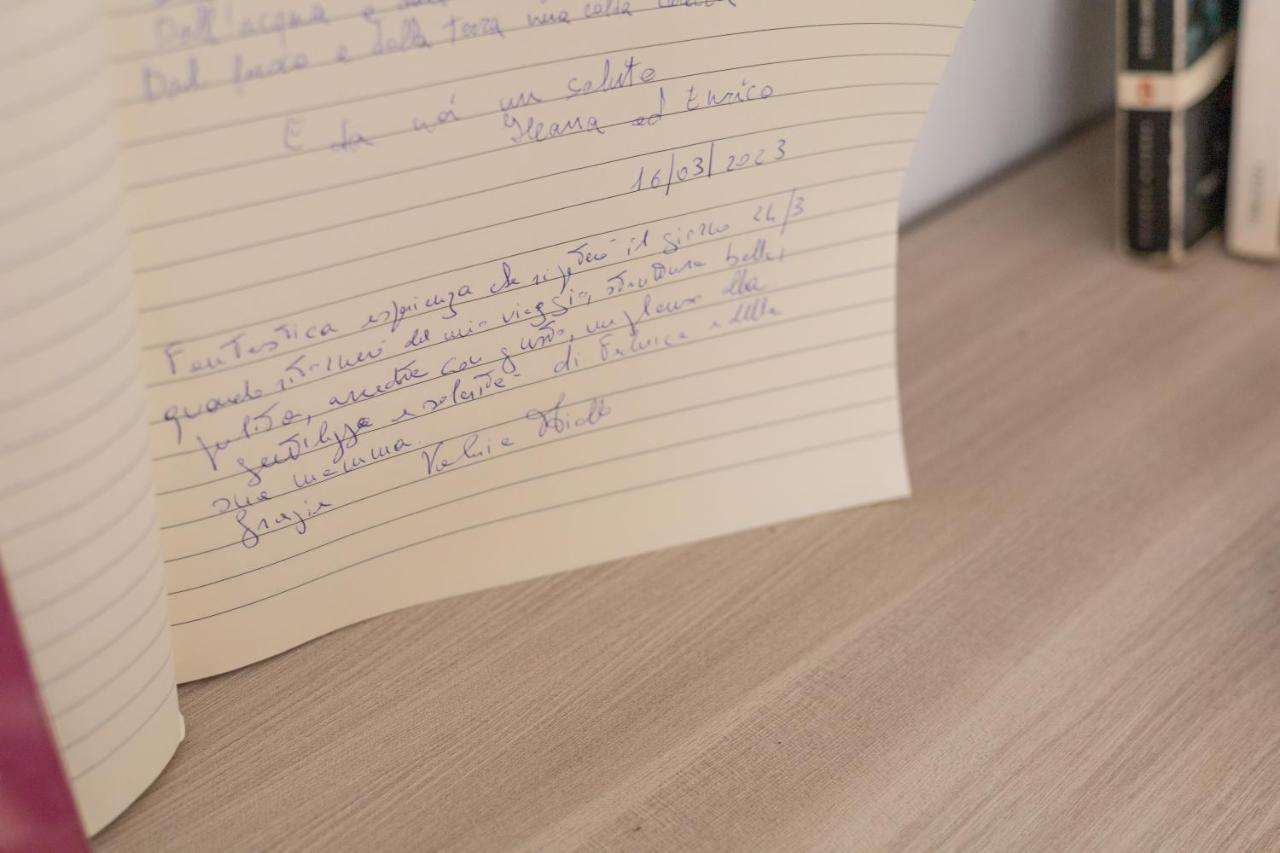 Dall'acqua e
Dal fuoco e dalla terra una calda
E da noi un saluto
Ileana ed Enrico
16/03/2023
Fantastica esperienza che ripeterò il giorno 24/3
quando ritornerò dal mio viaggio, struttura bella,
pulita, arredata con gusto, un plauso alla
gentilezza e solerzia di Federica e della
sua mamma.
Grazie Valeria